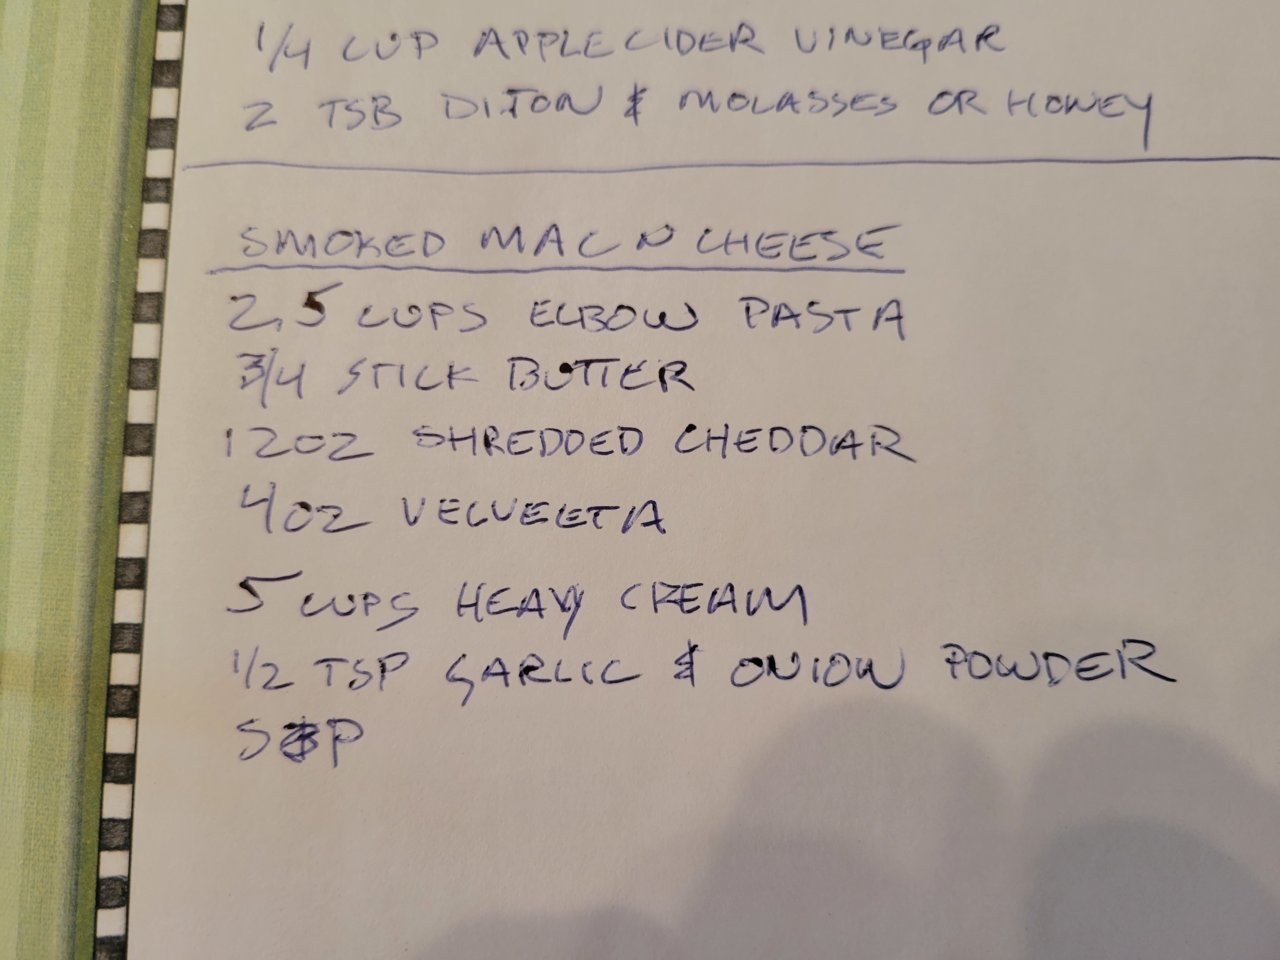 1/4 CUP APPLE CIDER VINEGAR
2 TSB DIJON & MOLASSES OR HONEY
SMOKED MAC N CHEESE
2.5 CUPS ELBOW PASTA
3/4 STICK BUTTER
12oz SHREDDED CHEDDAR
4oz VELVEETA
5 CUPS HEAVY CREAM
1/2 TSP GARLIC & ONION POWDER
S&P